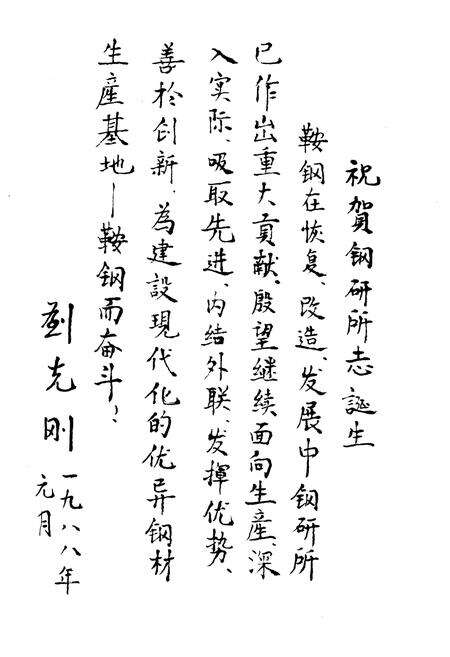 祝賀钢研所志誕生
鞍钢在恢复、改造、发展中钢研所
已作出重大貢献、殷望继续面向生産、深
入实际、吸取先进、内结外联、发揮优势、
善於创新、為建設現代化的优异钢材
生産基地—鞍钢而奋斗！
刘克刚
一九八八年
元月